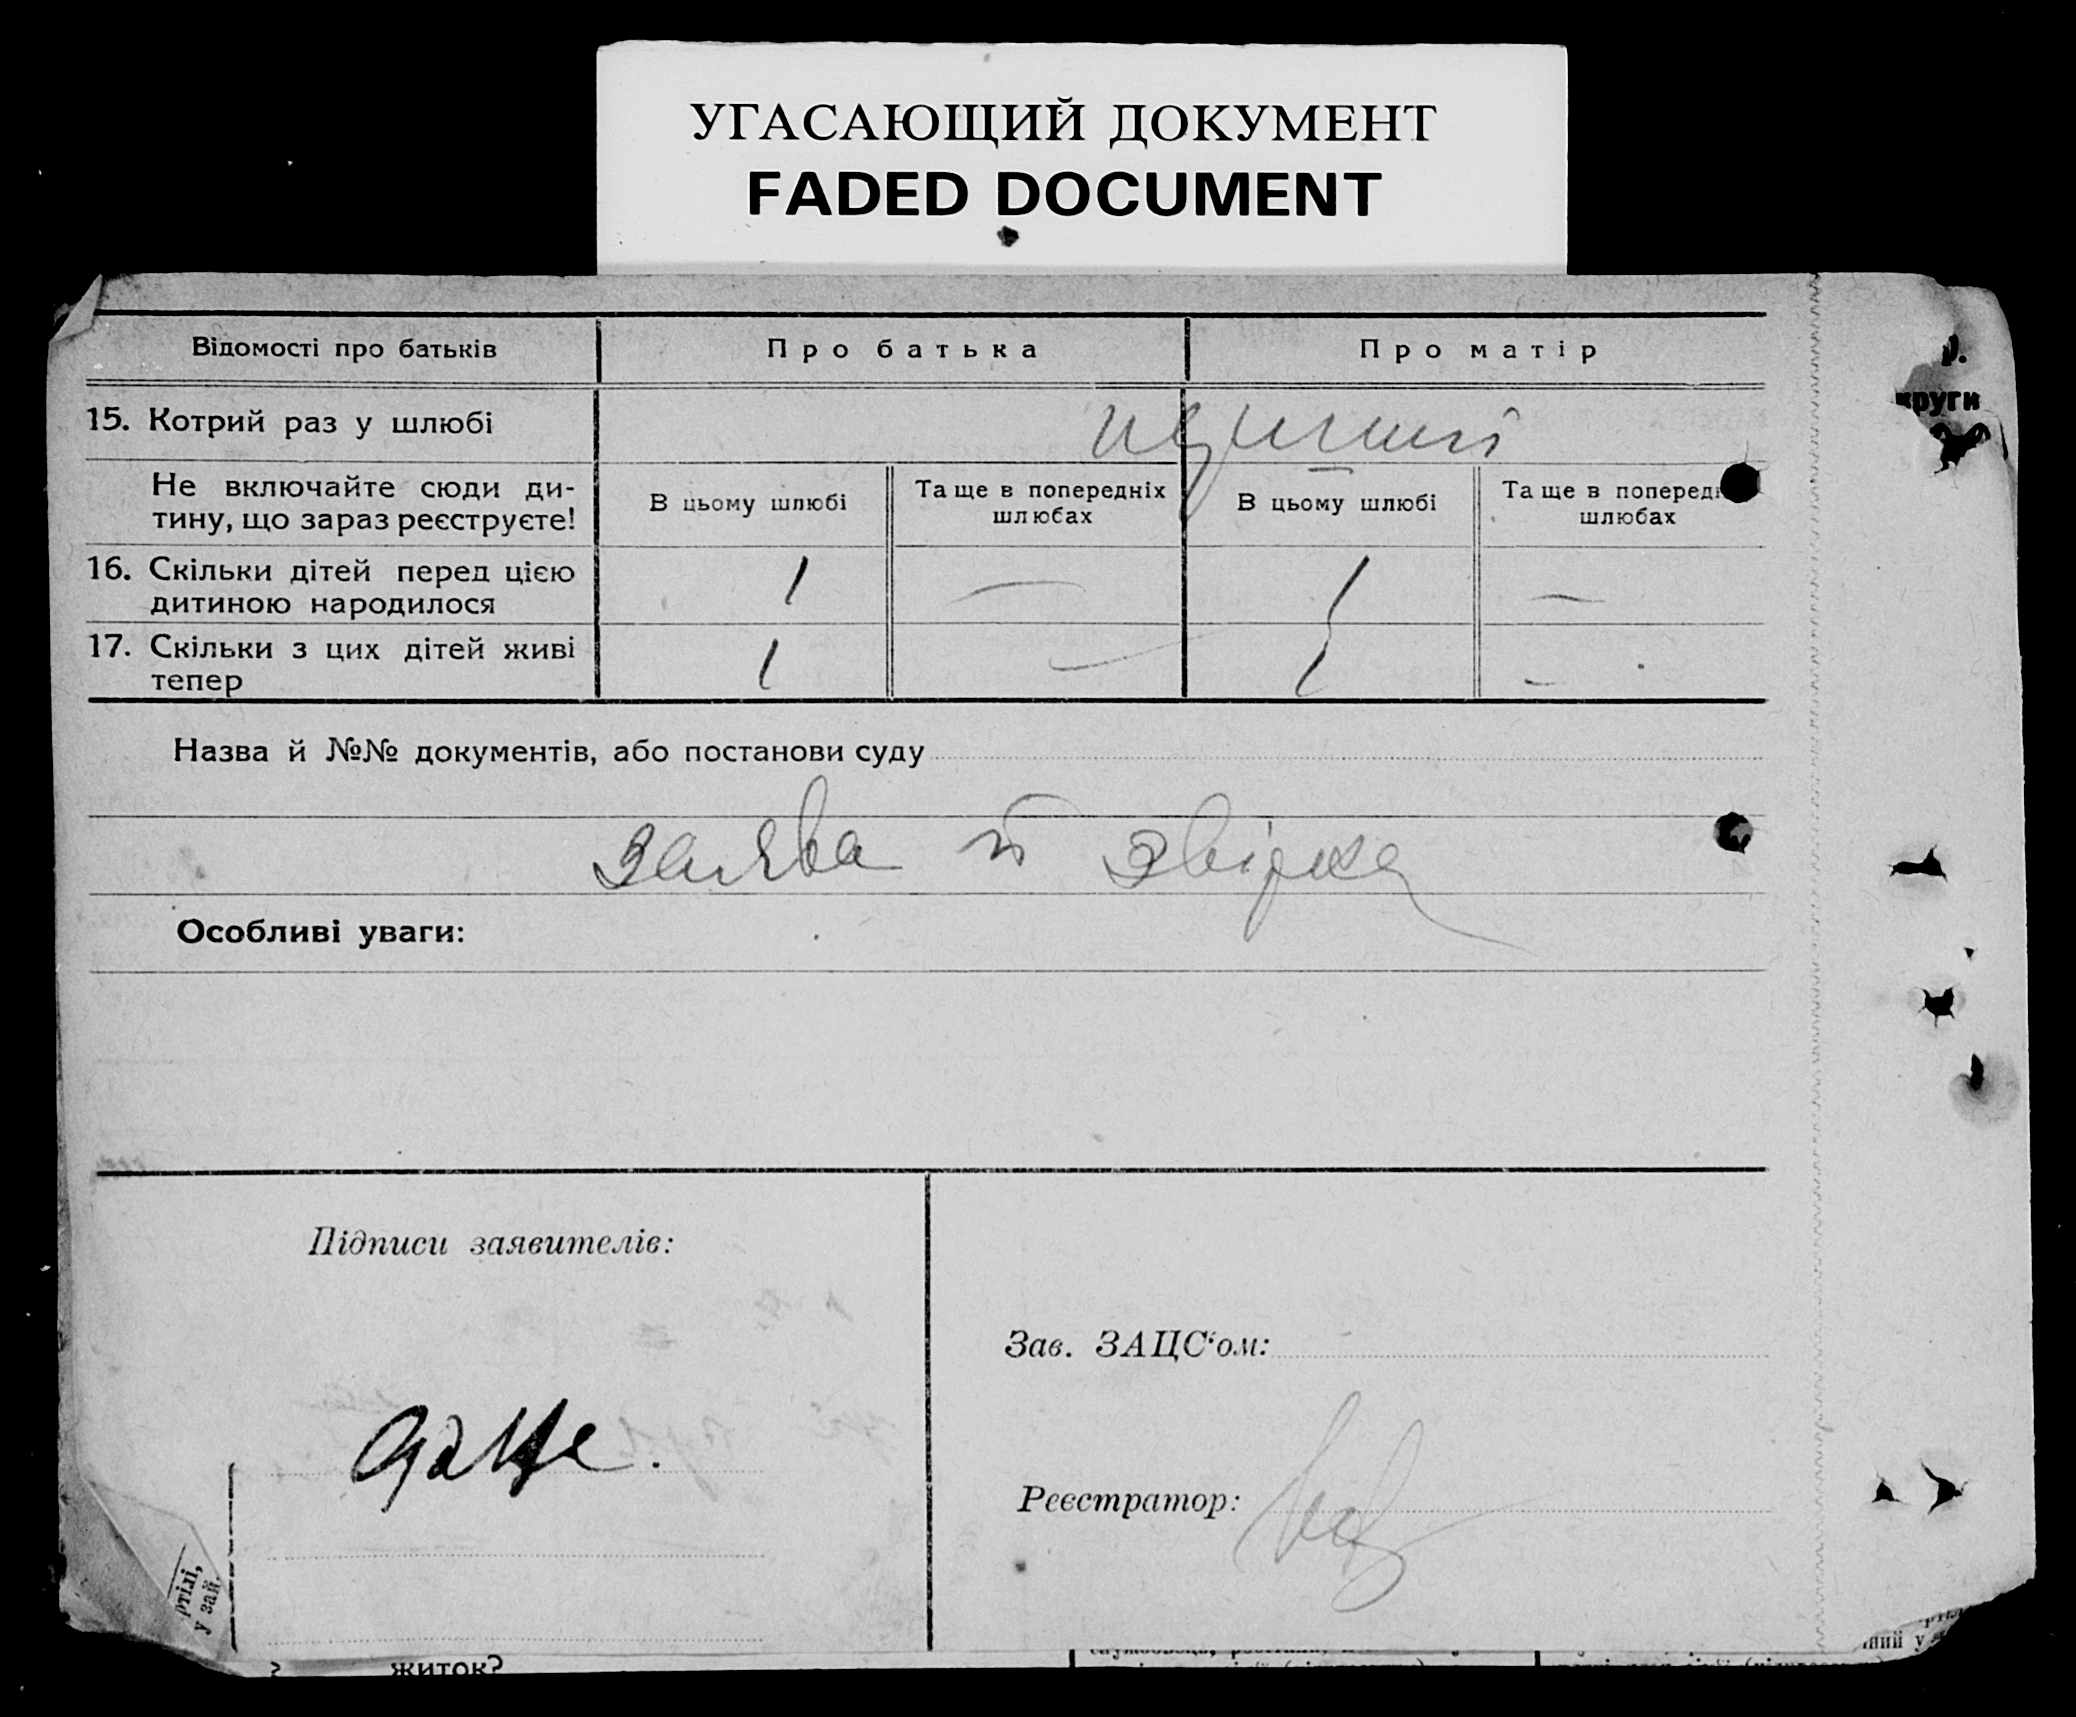 УГАСАЮЩИЙ ДОКУМЕНТ
FADED DOCUMENT
Відомості про батьків
Про батька
Про матір
15. Котрий раз у шлюбі
перший
Не включайте сюди ди-
тину, що зараз реєструєте!
В цьому шлюбі
Та ще в попередніх
шлюбах
В цьому шлюбі
Та ще в поперед
шлюбах
16. Скільки дітей перед цією
дитиною народилося
1 — 1 —
17. Скільки з цих дітей живі
тепер
1 — 1 —
Назва й №№ документів, або постанови суду
заява й звірка
Особливі уваги:
Підписи заявителів:
Зав. ЗАЦС‘ом:
Реєстратор:
круги
ртілі,
у зай.
житок?